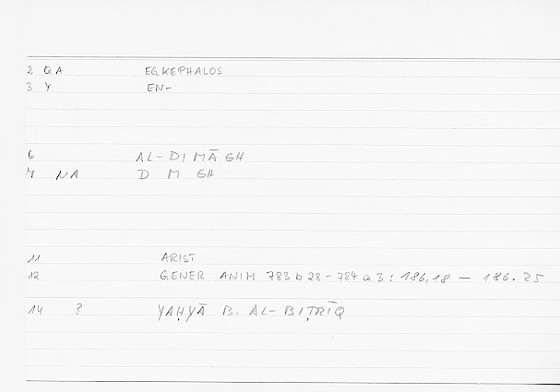 2 QA EGKEPHALOS
3 Y EN-
6 AL-DIMĀGH
7 NA D M GH
11 ARIST
12 GENER ANIM 783 b 28 - 784 a 3 : 186.18 — 186.25
14 ? YAḤYĀ B. AL-BIṬRĪQ